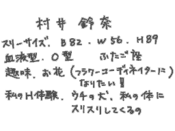 村井鈴奈
スリーサイズ. B82. W56. H89
血液型. O型　ふたご座
趣味. お花(フラワーコーディネイターに)
なりたい!!
私のH体験. ウチの犬、私の体に
スリスリしてくるの